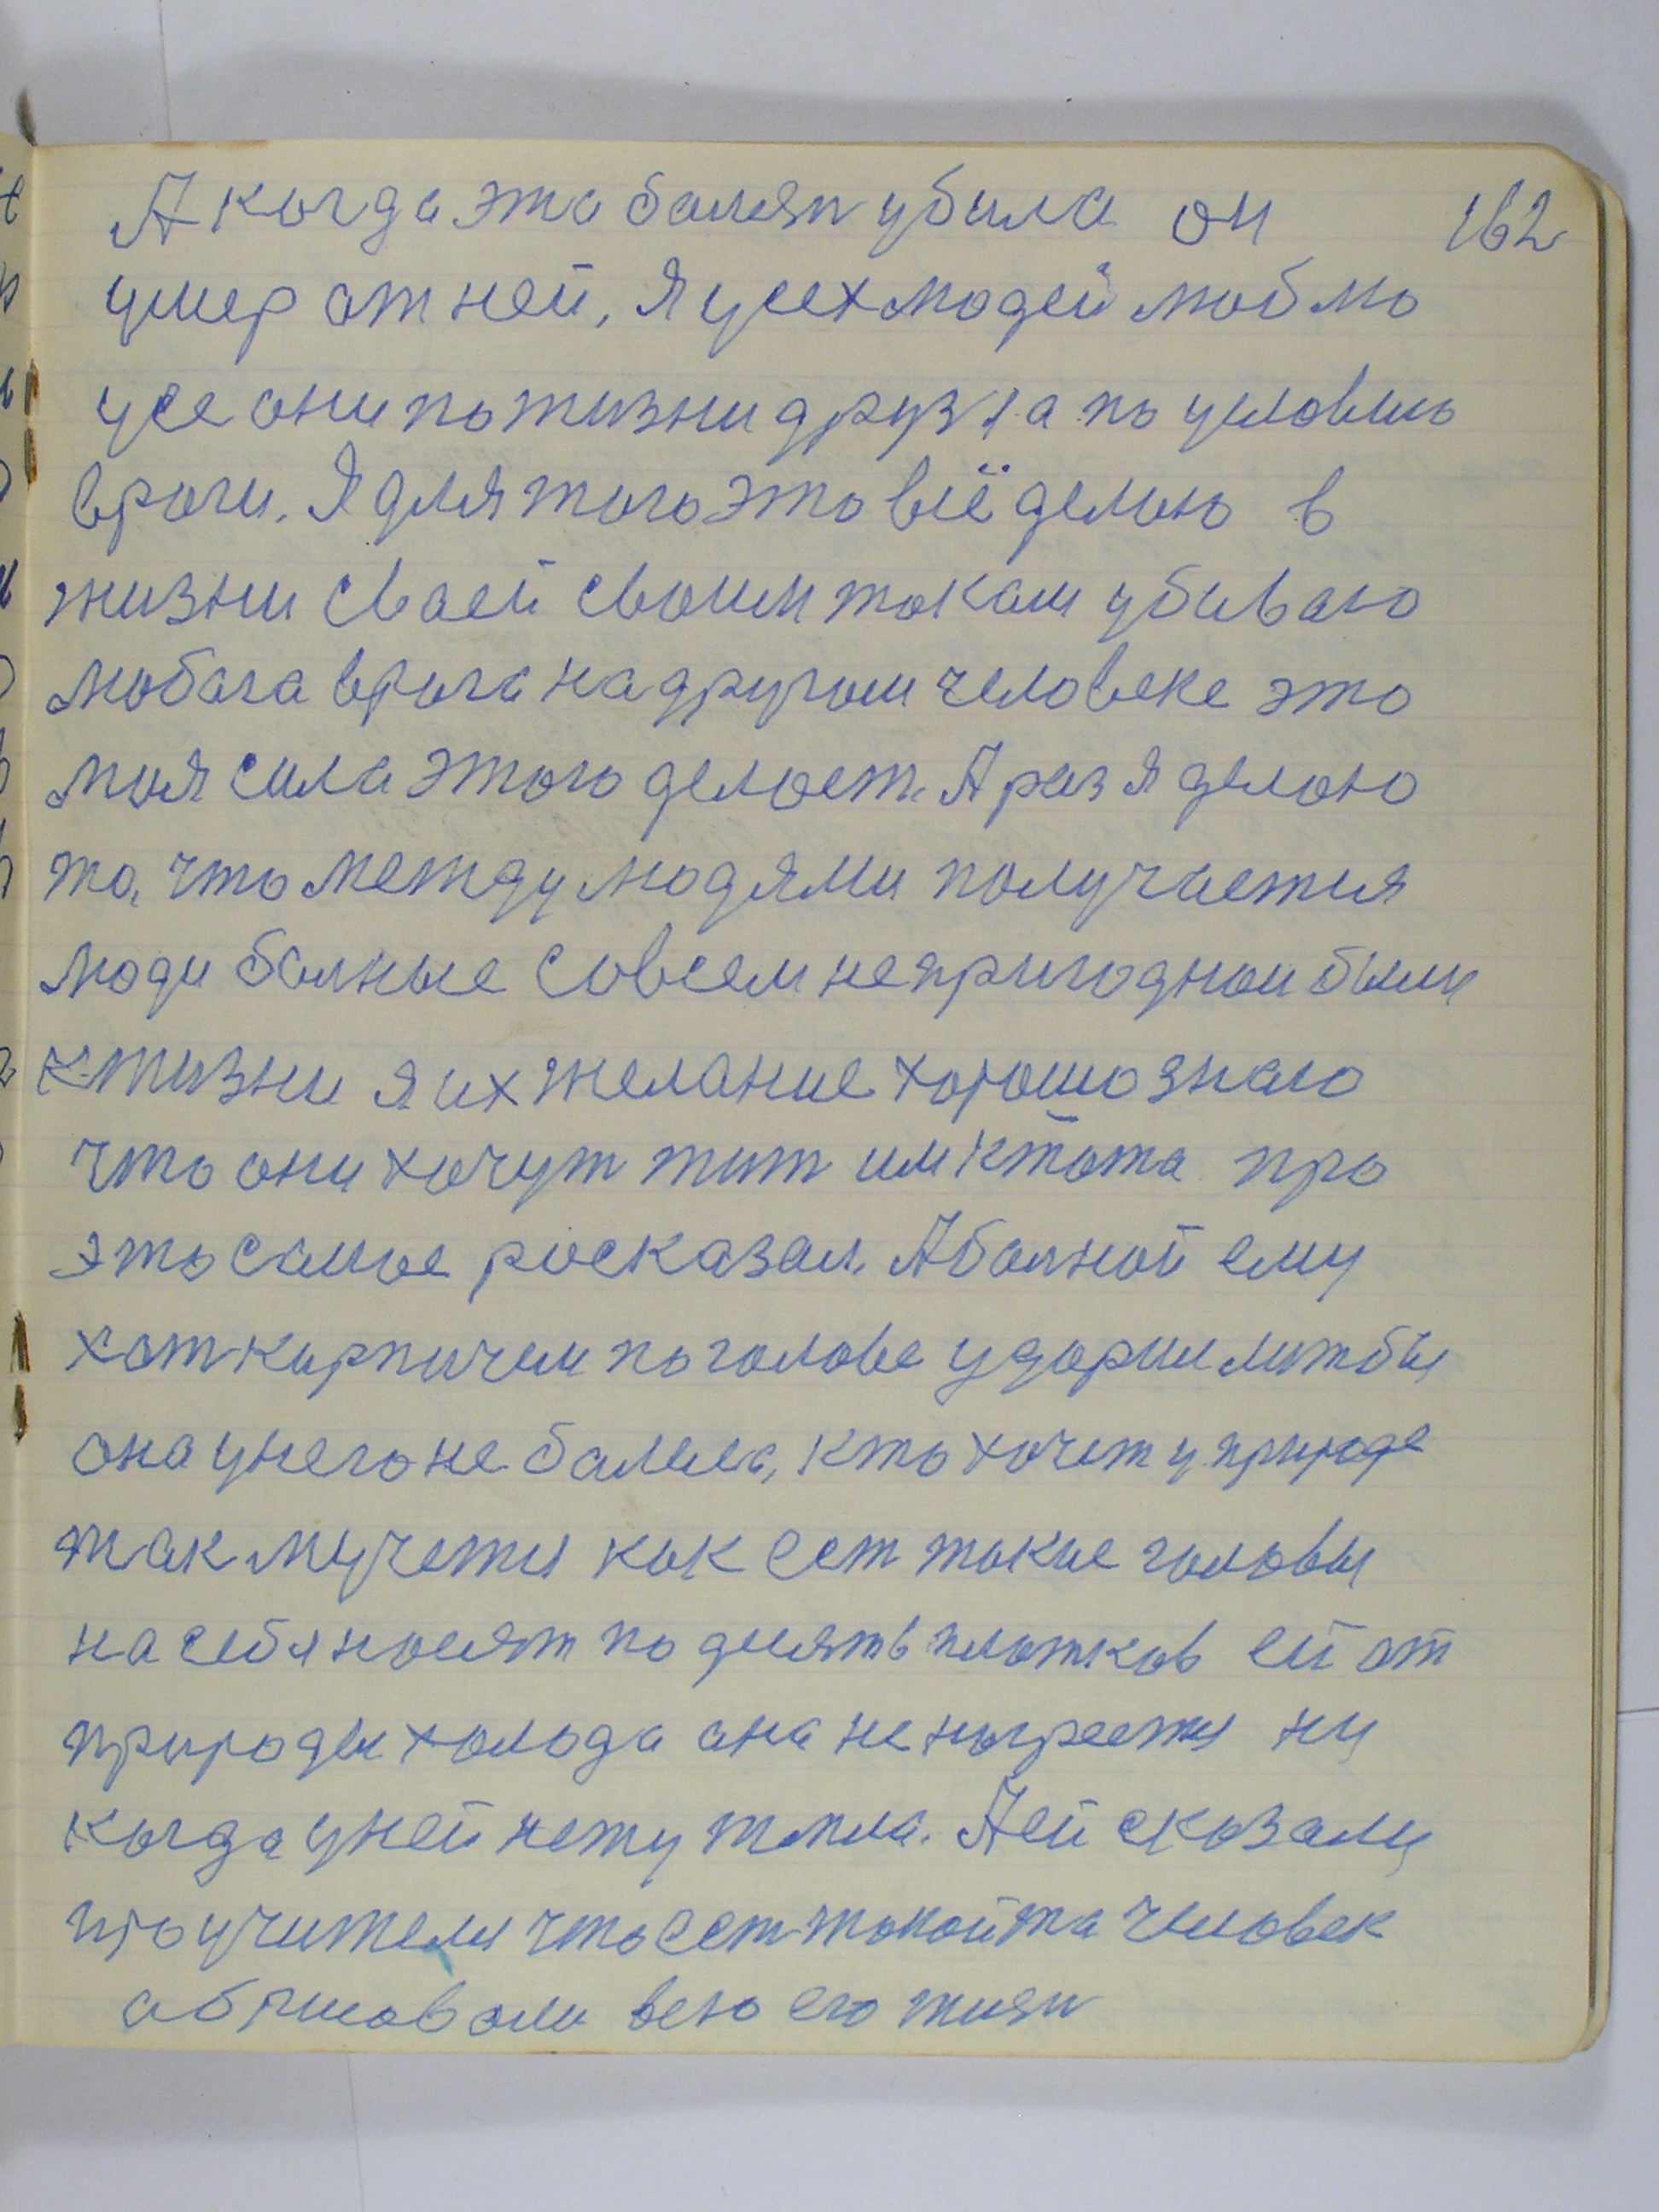 А когда эта балезн убила он 162
умер от ней, Я усех людей люблю
усе они по жизни друзя а по условию
враги. Я для того это всё делаю в
жизни сваей своим током убиваю
любога врага на другом человеке это
моя сила этого делает. А раз я делаю
то, что между людями получается
люди балные совсем непригодной были
к жизни я их желание хорошо знаю
что они хочут жит им ктота про
это самое росказал. А балной ему
хот кирпичем по голове ударили литбы
она у него не балела, кто хочет у природе
так мучется как ест такие головы
на себя носят по десять платков ей от
природы холода она не нагреется ни
когда у ней нету тепла. А ей сказали
про учителя что ест такойта человек
абрисовали всю его жизн